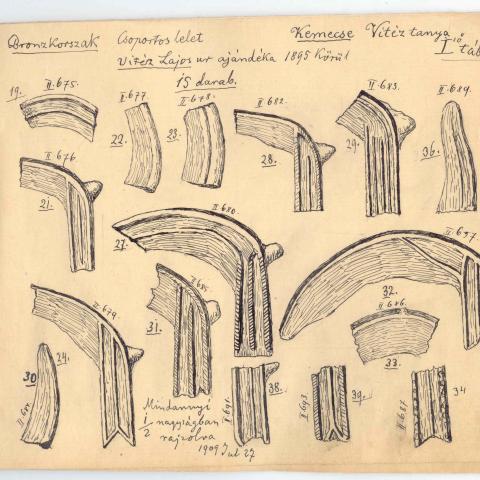 Bronzkorszak Csoportos lelet Kemecse Vitéz tanya
I ső táb
Vitéz Lajos ur ajándéka 1895 körül
15 darab.
19. II.675.
22. II.677
23. II.678.
28. II.682
29. II.683.
36. II.689.
21. II.676
27. II.680
32. II.637
31.
24. II.679.
II.686.
33.
30
38.
39. II.693.
II.687
34
Mindannyi
1/2 nagyságban
rajzolva
1909 Jul 27